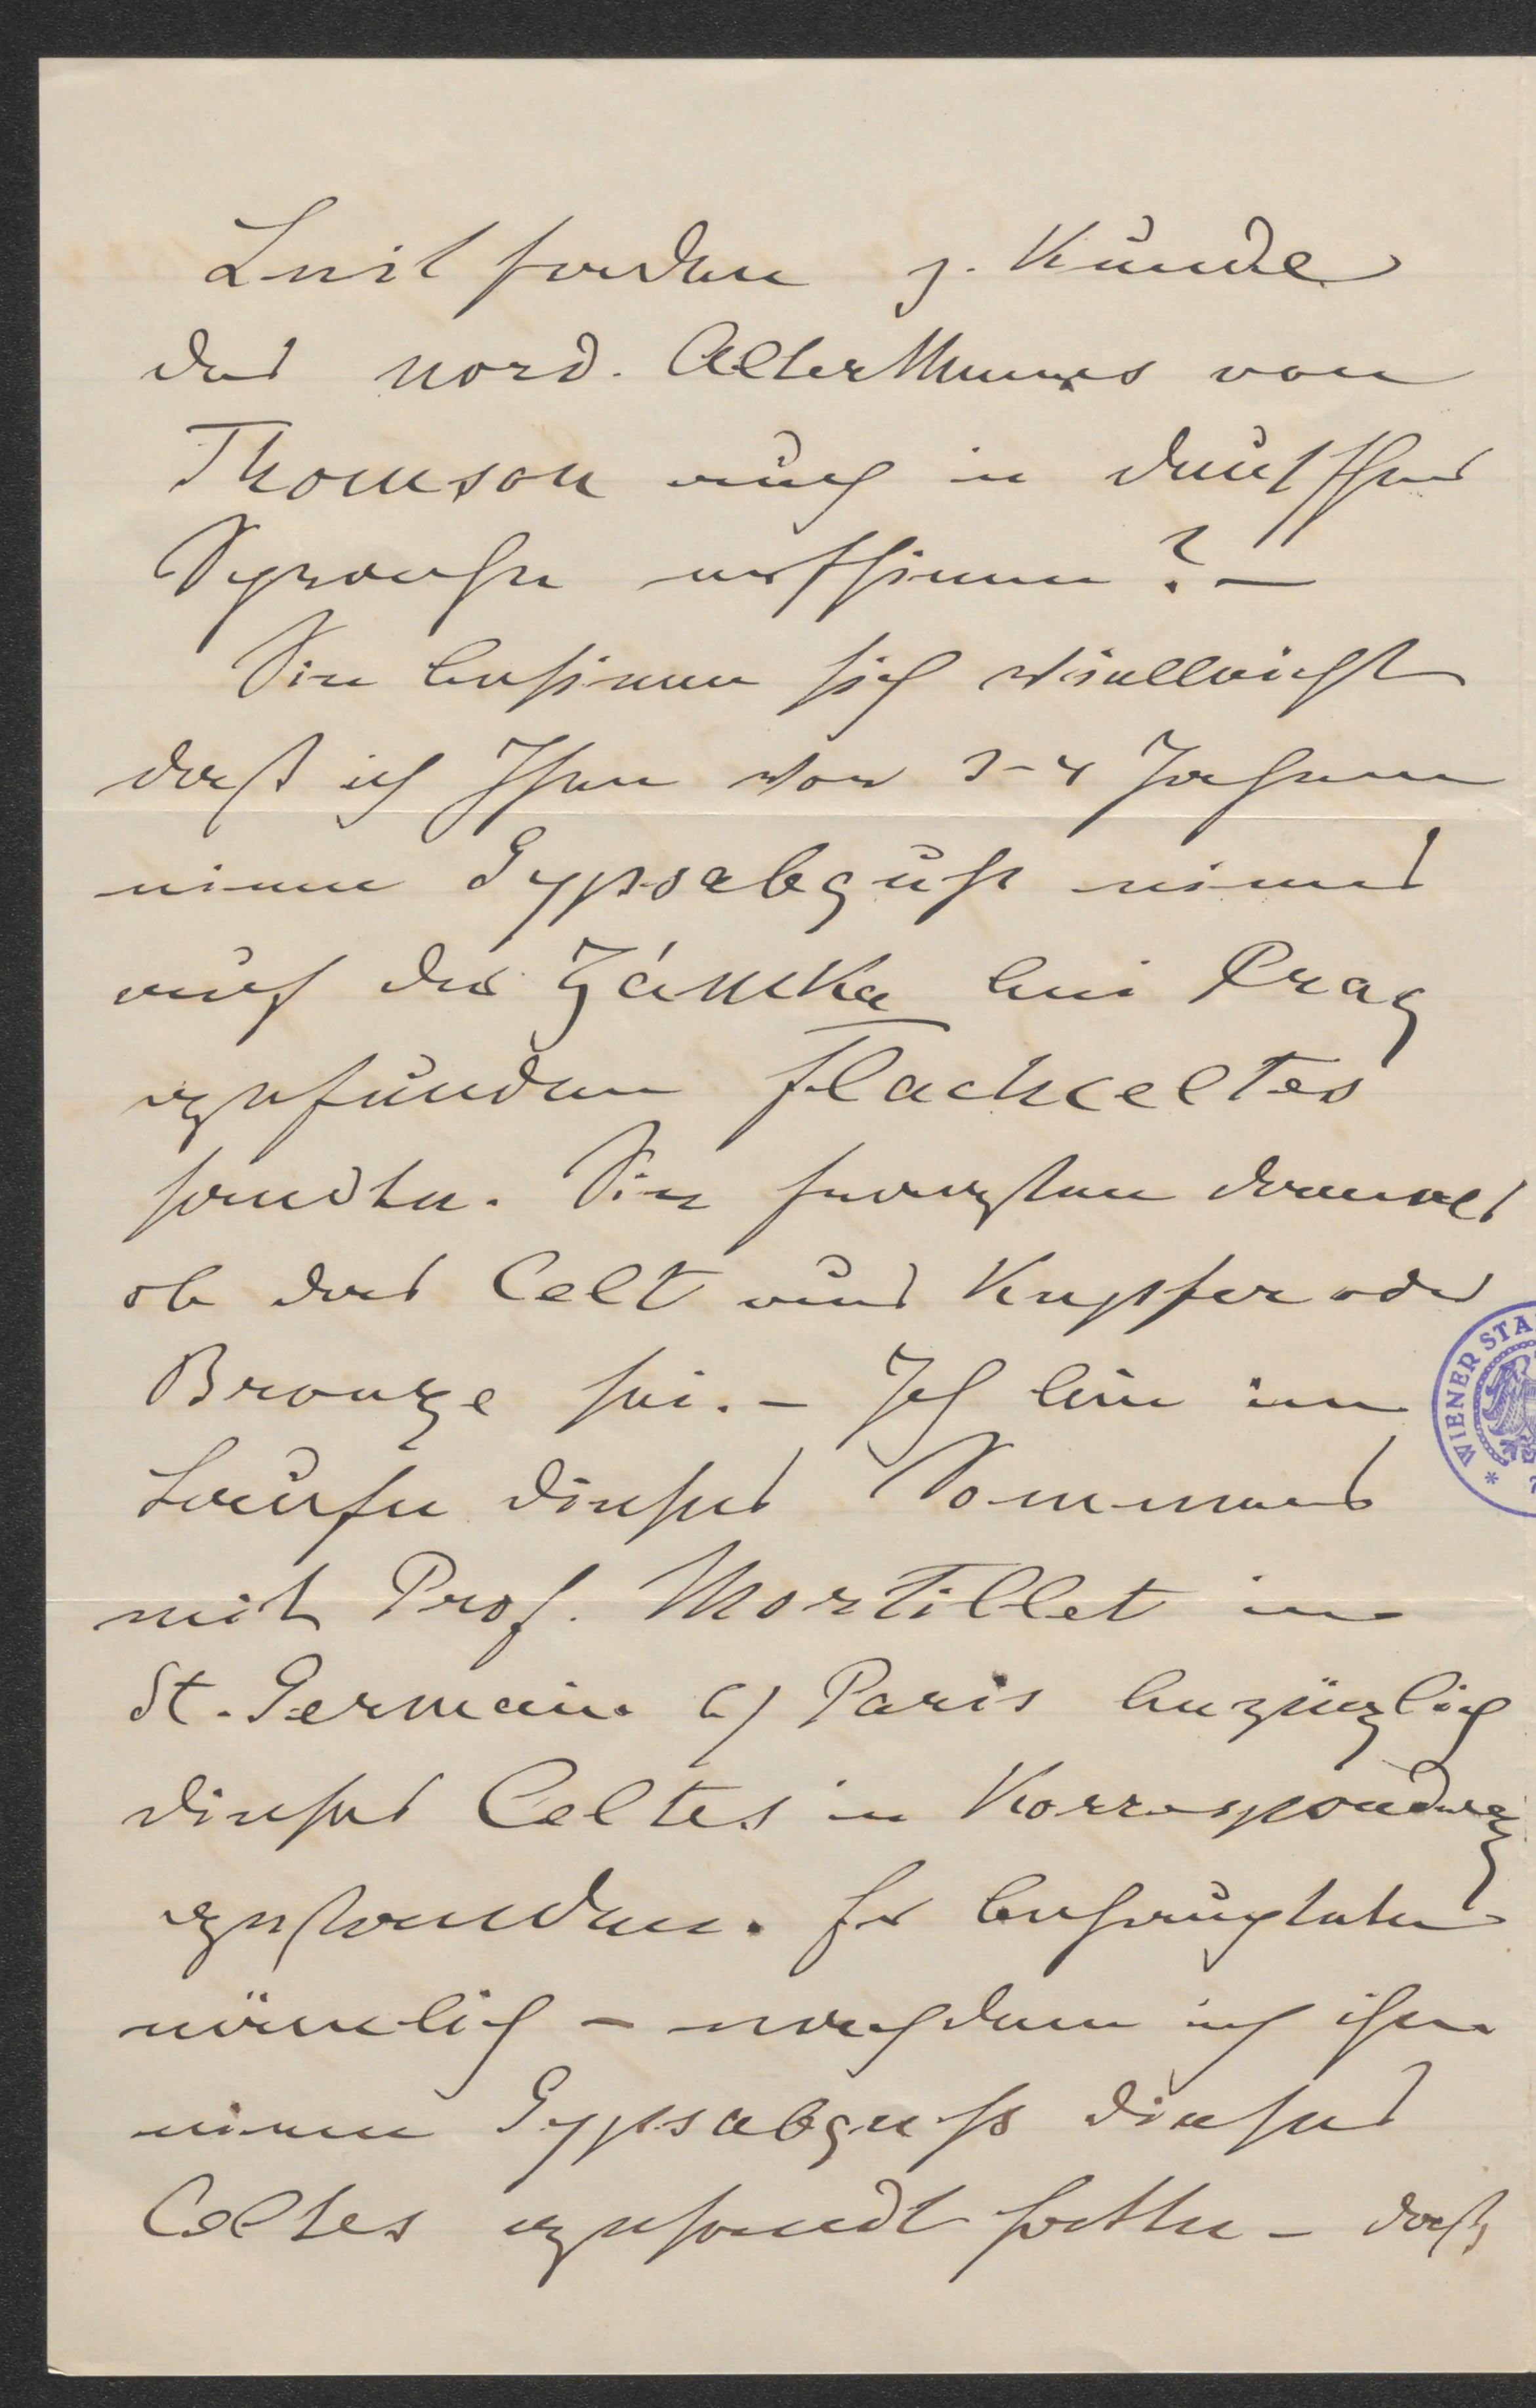 Leitfaden z. Kunde
des nord. Alterthumes von
Thomson auch in deutscher
Sprache erschienen? –
Sie besinnen sich vielleicht
daß ich Ihnen vor 3-4 Jahren
einen Gypsabguß eines
auf der Zámka bei Prag
gefundenen Flachceltes
sandte. Sie fragten damals
ob das Celt aus Kupfer oder
Bronze sei. – Ich bin im
Laufe dieses Sommers
mit Prof. Mortillet in
St. Germain b/ Paris bezüglich
dieses Celtes in Korrespondenz
gestanden. Er behauptete
nämlich – nachdem ich ihm
einen Gypsabguss dieses
Celtes gesandt hatte – daß
WIENER STA